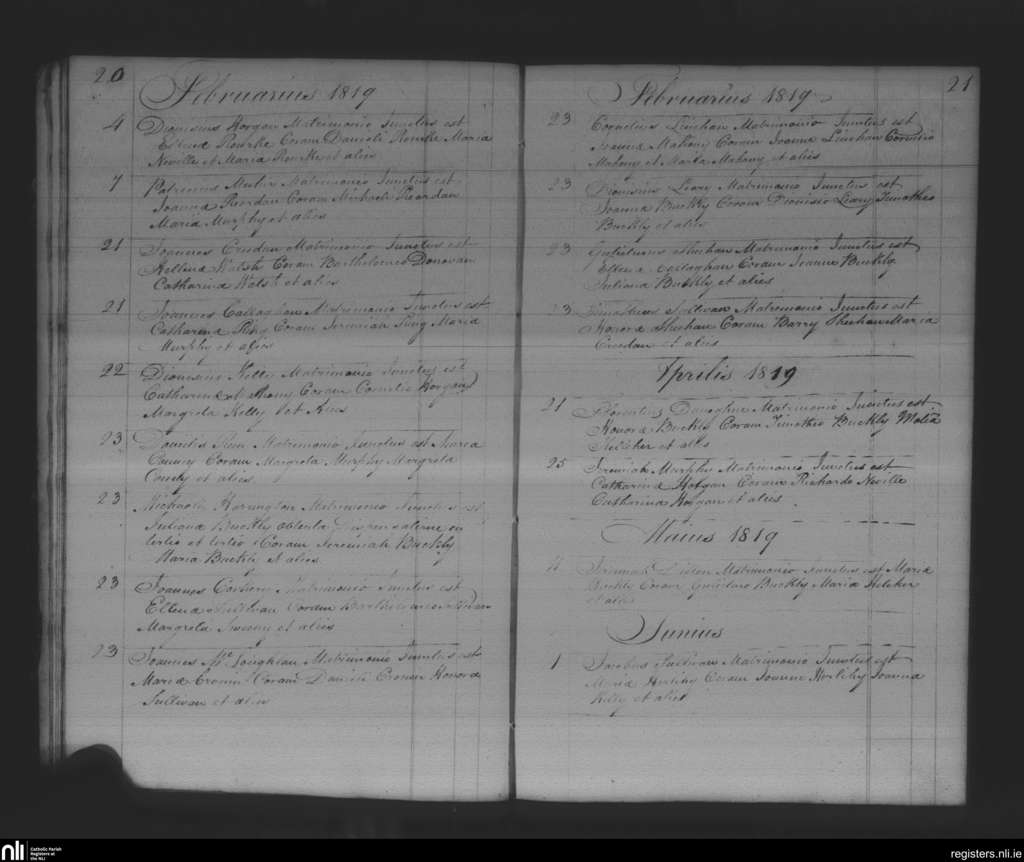 20
Februarius 1819
4 Dionisius Horgan Matrimonio Junctus est
Elena Rourke Coram Danieli Rourke Maria
Neville et Maria Rourke et aliis
7 Patricius Matrimonio Junctus est
Joanna Reardan Coram Michaeli Reardan
Maria Murphy et alies
21 Joannes Creedan Matrimonio Junctus est
Hellena Walsh Coram Bartholomeo Donovan
Catharina Walsh et alies
21 Joannes Callaghan Matrimonio Junctus est
Catharina Ring Coram Jeremiah Ring Maria
Murphy et alies
22 Dionisius Kelly Matrimonio Junctus est
Catharina Mahony Coram Cornelio Horgan
Margreta Kelly et
23 Matrimonio Junctus est Maria
Coram Margreta Murphy Margreta
et alies
23 Michaele Harrington Matrimonio Junctus est
Juliana Buckly obtenta in
tertio et tertio Coram Jeremiah Buckly
Maria Buckly et alies
23 Joannes Matrimonio Junctus est
Ellena Sullivan Coram Bartholomeo
Margreta Sweeny et alies
23 Joannes Mc Loughlan Matrimonio Junctus est
Maria Cronin Coram Danieli Cronin Honora
Sullivan et alies
21
Februarius 1819
23 Cornelius Linehan Matrimonio Junctus est
Joanna Mahony Coram Joanne Linehan Cornelio
Mahony et Maria Mahony et alies
23 Dionisius Leary Matrimonio Junctus est
Joanna Buckly Coram Dionisio Leary Timotheo
Buckly et alies
23 Gulielmus Sheehan Matrimonio Junctus est
Ellena Callaghan Coram Joanne Buckly
Juliana Buckly et alies
23 Timotheus Sullivan Matrimonio Junctus est
Honora Sheehan Coram Barry Sheehan Maria
Creedan et alies
Aprilis 1819
21 Florentius Donoghue Matrimonio Junctus est
Honora Buckly Coram Timotheo Buckly Maria
et alies
25 Jeremiah Murphy Matrimonio Junctus est
Catharina Horgan Coram Richardo Neville
Catharina Horgan et alies
Maius 1819
Jeremiah Matrimonio Junctus est Maria
Buckly Coram Gulielmo Buckly Maria
et alies
Junius
1 Jacobus Sullivan Matrimonio Junctus est
Maria Herlihy Coram Joanne Herlihy Joanna
Kelly et alies
nli
Catholic Parish
Registers at
the NLI
registers.nli.ie